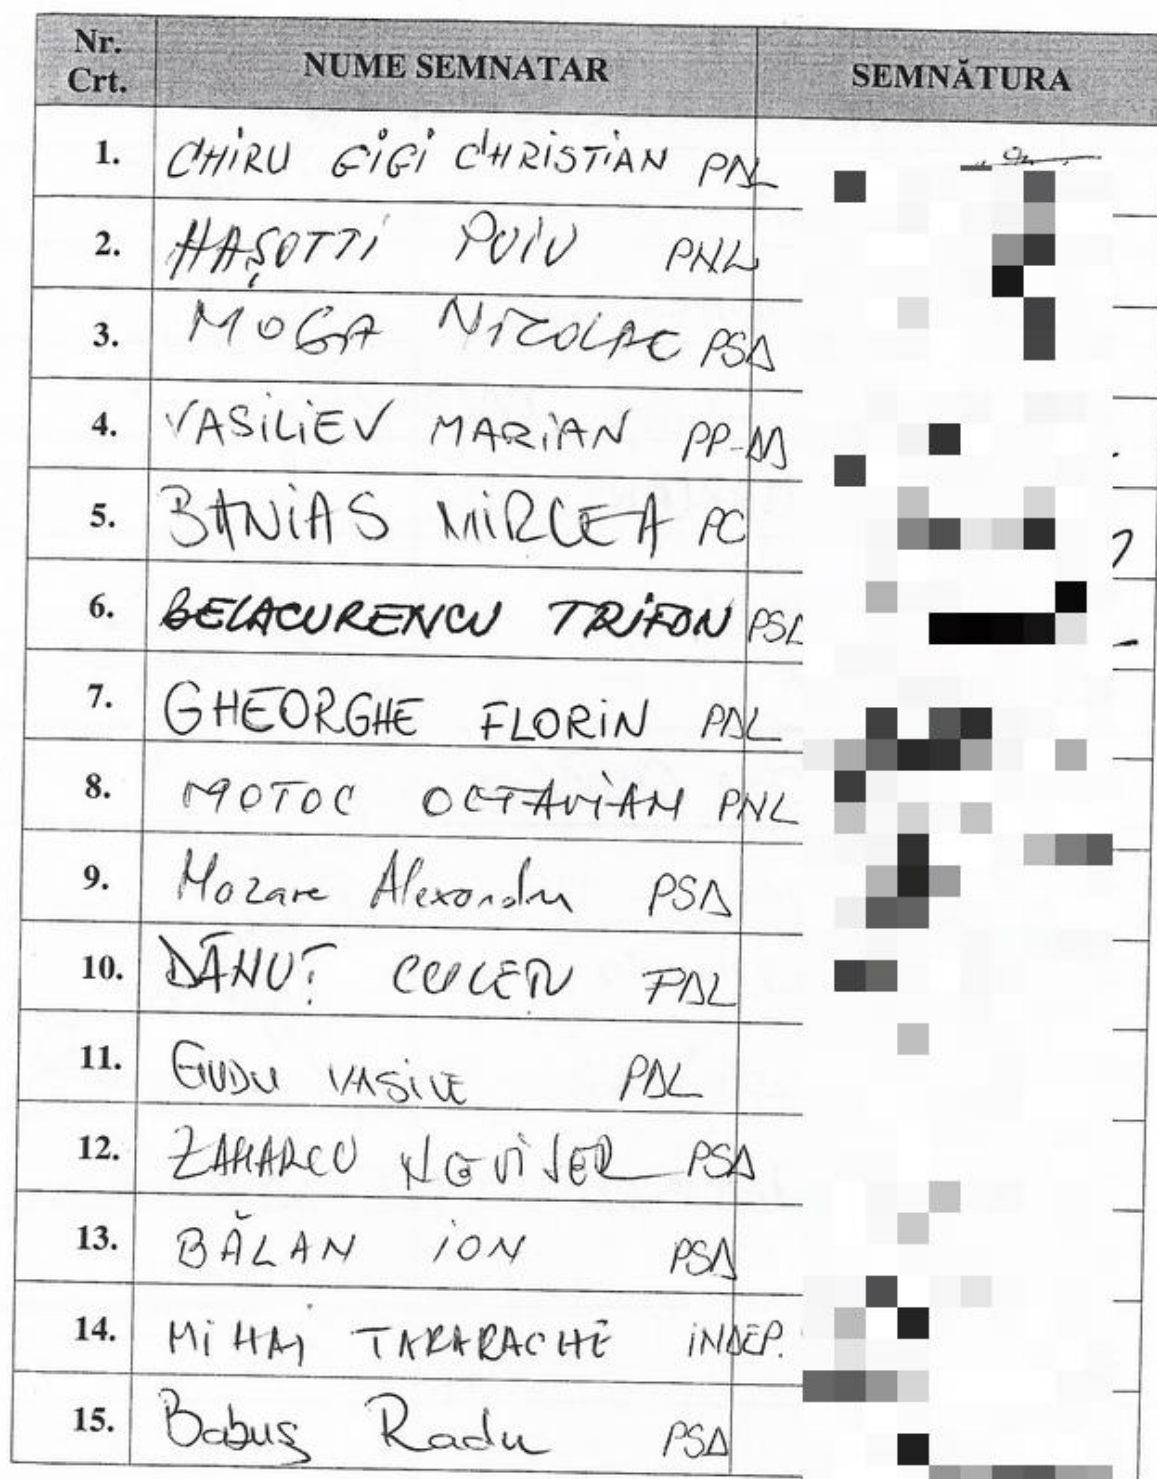 Nr. Crt. NUME SEMNATAR SEMNĂTURA
1. CHIRU GIGI CHRISTIAN PNL
2. HAȘOTTI PUIU PNL
3. MOGA NICOLAE PSD
4. VASILIEV MARIAN PP-DD
5. BANIAS MIRCEA PC
6. BELACURENCU TRIFON PSD
7. GHEORGHE FLORIN PDL
8. MOTOC OCTAVIAN PNL
9. Mazare Alexandru PSD
10. DĂNUȚ CULEȚU PDL
11. GUDU VASILE PDL
12. ZAHARCU NEVIJER PSD
13. BĂLAN ION PSD
14. MIHAI TARARACHE INDEP.
15. Babuș Radu PSD